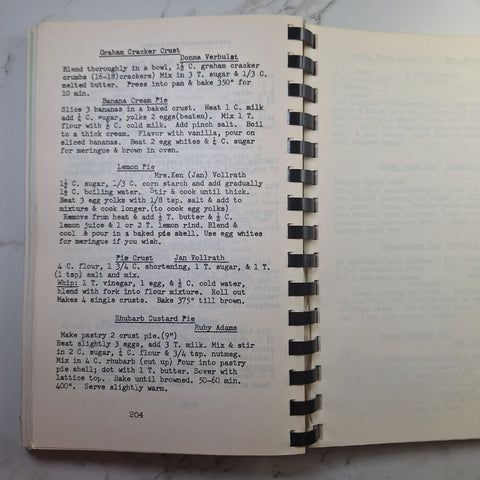 Graham Cracker Crust
Donna Verhulst
Blend thoroughly in a bowl, 1½ C. graham cracker
crumbs (16-18)crackers) Mix in 3 T. sugar & 1/3 C.
melted butter. Press into pan & bake 350° for
10 min.
Banana Cream Pie
Slice 3 bananas in a baked crust. Heat 1 C. milk
add C. sugar, yolks 2 eggs(beaten). Mix 1 T.
flour with C. cold milk. Add pinch salt. Boil
to a thick cream. Flavor with vanilla, pour on
sliced bananas. Beat 2 egg whites & C. sugar
for meringue & brown in oven.
Lemon Pie
Mrs.Ken (Jan) Vollrath
C. sugar, 1/3 C. corn starch and add gradually
C. boiling water. Stir & cook until thick.
Beat 3 egg yolks with 1/8 tsp. salt & add to
mixture & cook longer.(to cook egg yolks)
Remove from heat & add T. butter & C.
lemon juice & 1 or 2 T. lemon rind. Blend &
cool & pour in a baked pie shell. Use egg whites
for meringue if you wish.
Pie Crust Jan Vollrath
4 C. flour, 1 3/4 C. shortening, 1 T. sugar, & 1 T.
(1 tsp) salt and mix.
Whip: 1 T. vinegar, 1 egg, & C. cold water,
blend with fork into flour mixture. Roll out
Makes 4 single crusts. Bake 375° till brown.
Rhubarb Custard Pie
Ruby Adams
Make pastry 2 crust pie.(9")
Beat slightly 3 eggs, add 3 T. milk. Mix & stir
in 2 C. sugar, C. flour & 3/4 tsp. nutmeg.
Mix in 4 C. rhubarb (cut up) Pour into pastry
pie shell; dot with 1 T. butter. Sover with
lattice top. Bake until browned. 50-60 min.
400°. Serve slightly warm.
204